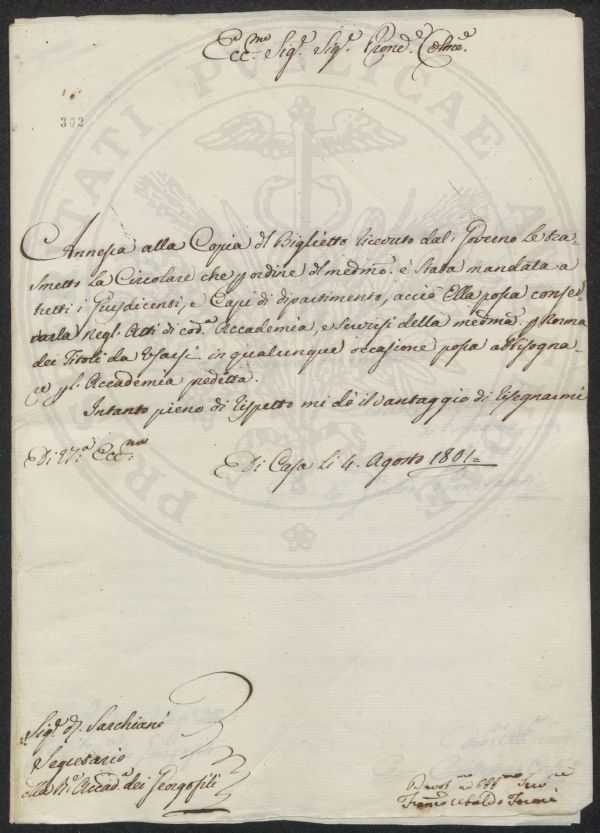 Ecc.mo Sig.e Sig.e Pron.e Colme.
302
Annessa alla Copia di Biglietto ricevuto dal Governo le tra-
smetto la Circolare che p ordine di medmo. è stata mandata a
tutti i Giusdicenti, e Capi di dipartimento, acciò Ella possa conser-
varla negl. Atti di cod.a Accademia, e servirsi della medma. p Norma
dei Titoli da Usarsi in qualunque occasione possa abbisogna-
re p l. Accademia predetta.
Intanto pieno di rispetto mi dò il vantaggio di rasegnarmi
Di V.a Ecc.
Di Casa Li 4. Agosto 1801=
Sig.e D. Sarchiani
Segretario
della R.e Accad.a dei Georgofili
Devot.mo ed Obb.mo Serv.re
Franco Ubaldo
PUBLICAE